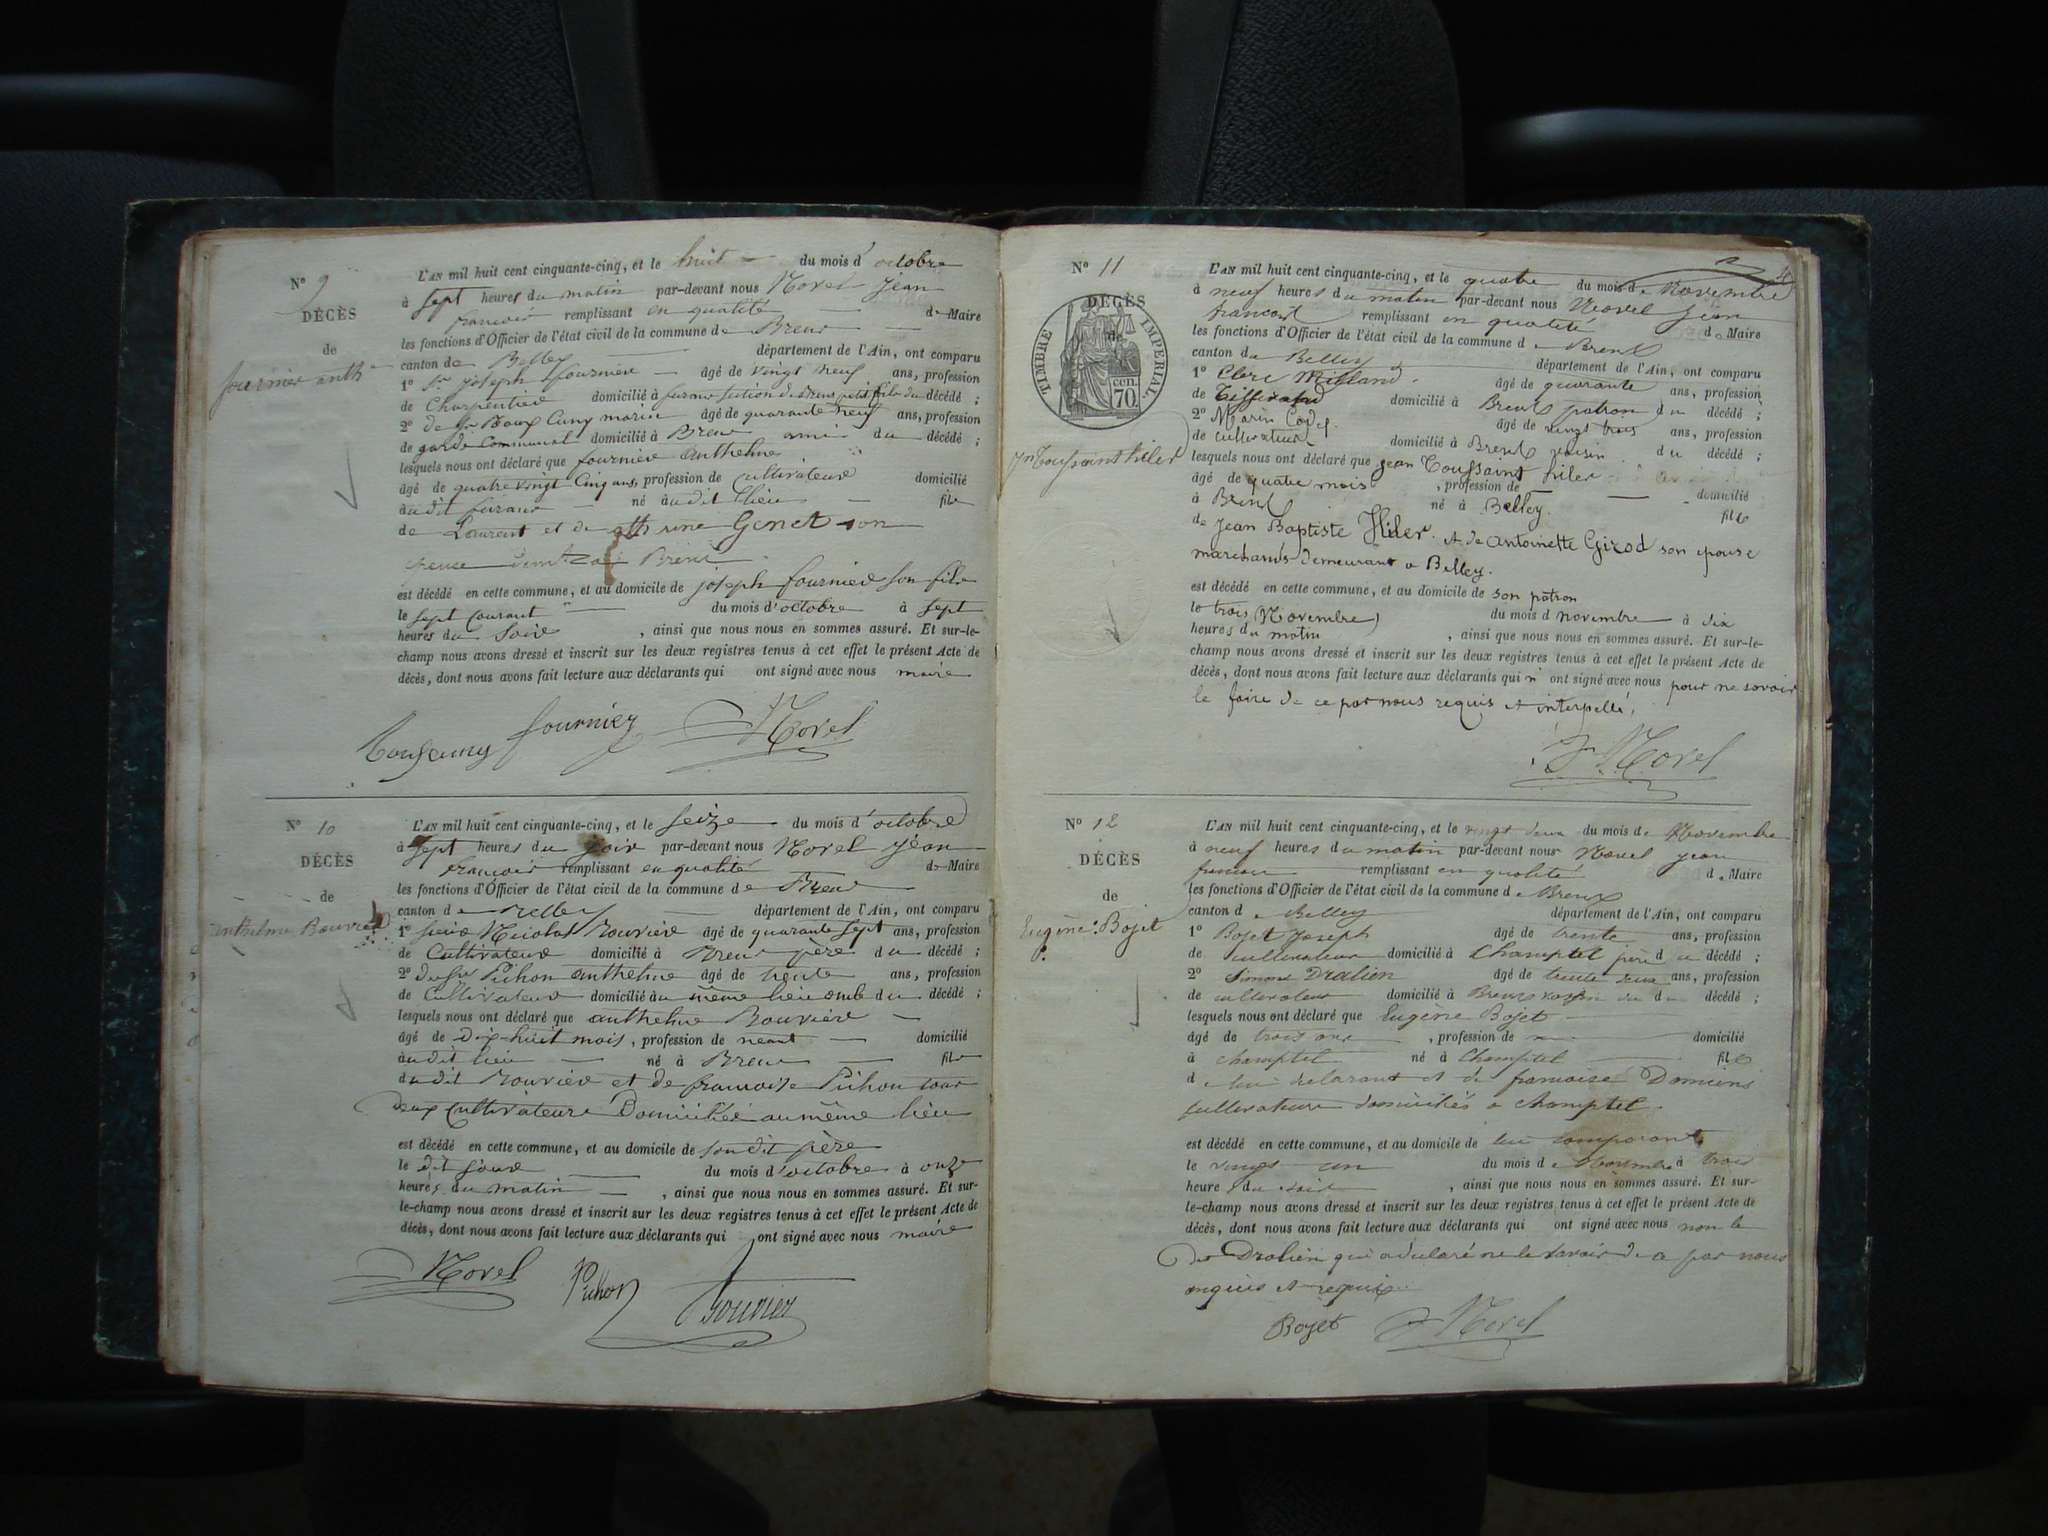 N° 9
DÉCÈS
de
fournier anth
L'AN mil huit cent cinquante-cinq, et le huit du mois d'octobre
à sept heures du matin par-devant nous Morel Jean
francois remplissant en qualité de Maire
les fonctions d'Officier de l'état civil de la commune de Brens
canton de Belley département de l'Ain, ont comparu
1° Sr joseph fournier âgé de vingt neuf ans, profession
de Charpentier domicilié à section de Brens petit fils du décédé ;
2° de Sr Cuny marin âgé de quarante neuf ans, profession
de garde Communal domicilié à Brens ami du décédé ;
lesquels nous ont déclaré que fournier anthelme
âgé de quatre vingt Cinq ans, profession de cultivateur domicilié
au dit né au dit lieu fils
de Laurent et de Genet son
Brens
est décédé en cette commune, et au domicile de joseph fournier son fils
le sept courant du mois d'octobre à sept
heures du Soir , ainsi que nous nous en sommes assuré. Et sur-le-
champ nous avons dressé et inscrit sur les deux registres tenus à cet effet le présent Acte de
décès, dont nous avons fait lecture aux déclarants qui ont signé avec nous maire
fournier Morel
N° 10
DÉCÈS
de
anthelme Bouvier
L'AN mil huit cent cinquante-cinq, et le seize du mois d'octobre
à sept heures du soir par-devant nous Morel Jean
francois remplissant en qualité de Maire
les fonctions d'Officier de l'état civil de la commune de Brens
canton de Belley département de l'Ain, ont comparu
1° sieur Nicolas Bouvier âgé de quarante sept ans, profession
de Cultivateur domicilié à Brens père du décédé ;
2° Pichon anthelme âgé de trente ans, profession
de Cultivateur domicilié au même lieu du décédé ;
lesquels nous ont déclaré que anthelme Bouvier
âgé de Dix-huit mois, profession de neant domicilié
au dit lieu né à Brens fils
du dit Bouvier et de francoise Pichon tous
deux cultivateurs Domiciliés au même lieu
est décédé en cette commune, et au domicile de son dit père
le dit jour du mois d'octobre à onze
heures du matin , ainsi que nous nous en sommes assuré. Et sur-
le-champ nous avons dressé et inscrit sur les deux registres tenus à cet effet le présent Acte de
décès, dont nous avons fait lecture aux déclarants qui ont signé avec nous maire
Morel Pichon Bouvier
N° 11
DÉCÈS
de
TIMBRE IMPERIAL
70 cen.
Jn Toussaint hiler
L'AN mil huit cent cinquante-cinq, et le quatre du mois de Novembre
à neuf heures du matin par-devant nous Morel jean
francois remplissant en qualité de Maire
les fonctions d'Officier de l'état civil de la commune de Brens
canton de Belley département de l'Ain, ont comparu
1° Clerc âgé de quarante ans, profession
de Tisserand domicilié à Brens patron du décédé ;
2° Marin âgé de vingt trois ans, profession
de cultivateur domicilié à Brens voisin du décédé ;
lesquels nous ont déclaré que jean Toussaint hiler
âgé de quatre mois , profession de domicilié
à Brens né à Belley. fils
de Jean Baptiste Hiler et de antoinette Girod son epouse
marchands demeurant a Belley.
est décédé en cette commune, et au domicile de son patron
le trois (Novembre) du mois de novembre à dix
heures du matin , ainsi que nous nous en sommes assuré. Et sur-le-
champ nous avons dressé et inscrit sur les deux registres tenus à cet effet le présent Acte de
décès, dont nous avons fait lecture aux déclarants qui n'ont signé avec nous pour ne savoir
le faire de ce par nous requis et interpellé.
Jn Morel
N° 12
DÉCÈS
de
Eugène Bojet
L'AN mil huit cent cinquante-cinq, et le vingt deux du mois de Novembre
à neuf heures du matin par-devant nous Morel jean
francois remplissant en qualité de Maire
les fonctions d'Officier de l'état civil de la commune de Brens
canton de Belley département de l'Ain, ont comparu
1° Bojet Joseph âgé de trente ans, profession
de cultivateur domicilié à Champtel père du décédé ;
2° Simone Dralien âgé de trente deux ans, profession
de cultivateur domicilié à Brens voisin du décédé ;
lesquels nous ont déclaré que Eugène Bojet
âgé de trois ans , profession de domicilié
à champtel né à Champtel fils
de lui déclarant et de francoise
cultivateurs domiciliés a champtel.
est décédé en cette commune, et au domicile de lui comparant
le vingt un du mois de Novembre à trois
heures du soir , ainsi que nous nous en sommes assuré. Et sur-
le-champ nous avons dressé et inscrit sur les deux registres tenus à cet effet le présent Acte de
décès, dont nous avons fait lecture aux déclarants qui ont signé avec nous non le
Dralien qui a déclaré ne le savoir de ce par nous
enquis et requis
Bojet Jn Morel